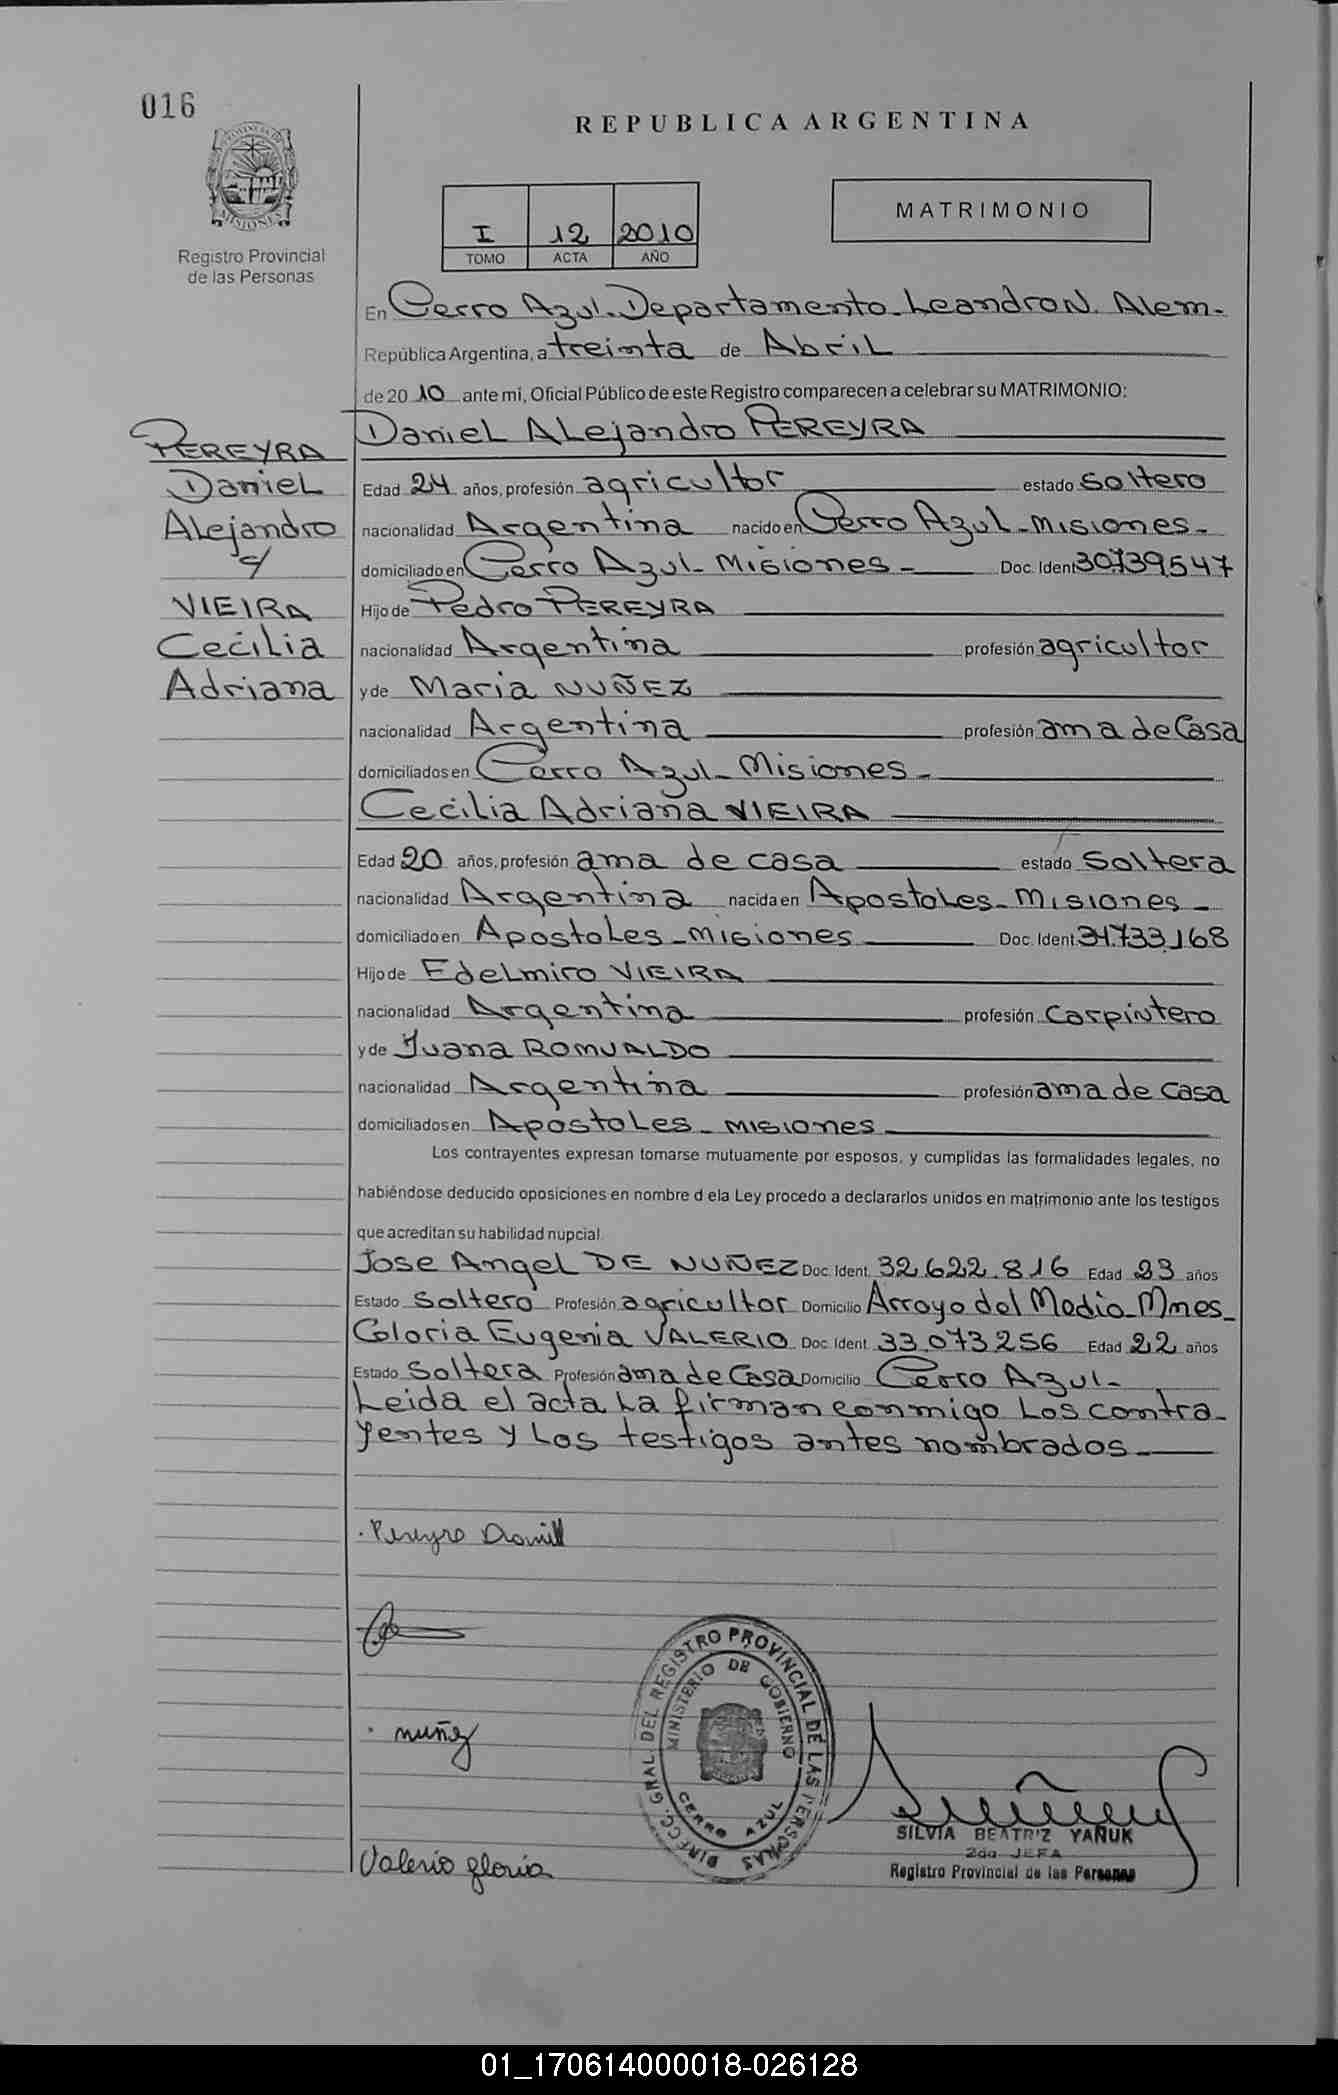 016
REPUBLICA ARGENTINA
PROVINCIA DE
MISIONES
Registro Provincial
de las Personas
I 12 2010
TOMO ACTA AÑO
MATRIMONIO
En Cerro Azul. Departamento Leandro N. Alem.
República Argentina, a treinta de Abril
de 20 10 ante mi, Oficial Público de este Registro comparecen a celebrar su MATRIMONIO:
PEREYRA
Daniel
Alejandro
c/
VIEIRA
Cecilia
Adriana
Daniel Alejandro PEREYRA
Edad 24 años, profesión agricultor estado Soltero
nacionalidad Argentina nacido en Cerro Azul - Misiones -
domiciliado en Cerro Azul - Misiones - Doc. Ident 30.739.547
Hijo de Pedro PEREYRA
nacionalidad Argentina profesión agricultor
y de Maria NUÑEZ
nacionalidad Argentina profesión ama de Casa
domiciliados en Cerro Azul - Misiones -
Cecilia Adriana VIEIRA
Edad 20 años, profesión ama de casa estado Soltera
nacionalidad Argentina nacida en Apostoles - Misiones -
domiciliado en Apostoles - Misiones Doc. Ident. 34.733.168
Hijo de Edelmiro VIEIRA
nacionalidad Argentina profesión Carpintero
y de Juana ROMUALDO
nacionalidad Argentina profesión ama de Casa
domiciliados en Apostoles - Misiones
Los contrayentes expresan tomarse mutuamente por esposos, y cumplidas las formalidades legales, no
habiéndose deducido oposiciones en nombre d ela Ley procedo a declararlos unidos en matrimonio ante los testigos
que acreditan su habilidad nupcial.
Jose Angel DE NUÑEZ Doc. Ident. 32.622.816 Edad 23 años
Estado Soltero Profesión agricultor Domicilio Arroyo del Medio - Mnes -
Gloria Eugenia VALERIO Doc. Ident. 33.073.256 Edad 22 años
Estado Soltera Profesión ama de Casa Domicilio Cerro Azul -
Leida el acta la firman conmigo los contra-
yentes y los testigos antes nombrados
Pereyra Daniel
nuñez
Valerio gloria
DIRECC. GRAL. DEL REGISTRO PROVINCIAL DE LAS PERSONAS
MINISTERIO DE GOBIERNO
CERRO AZUL
SILVIA BEATRIZ YAÑUK
2da JEFA
Registro Provincial de las Personas
01_170614000018-026128